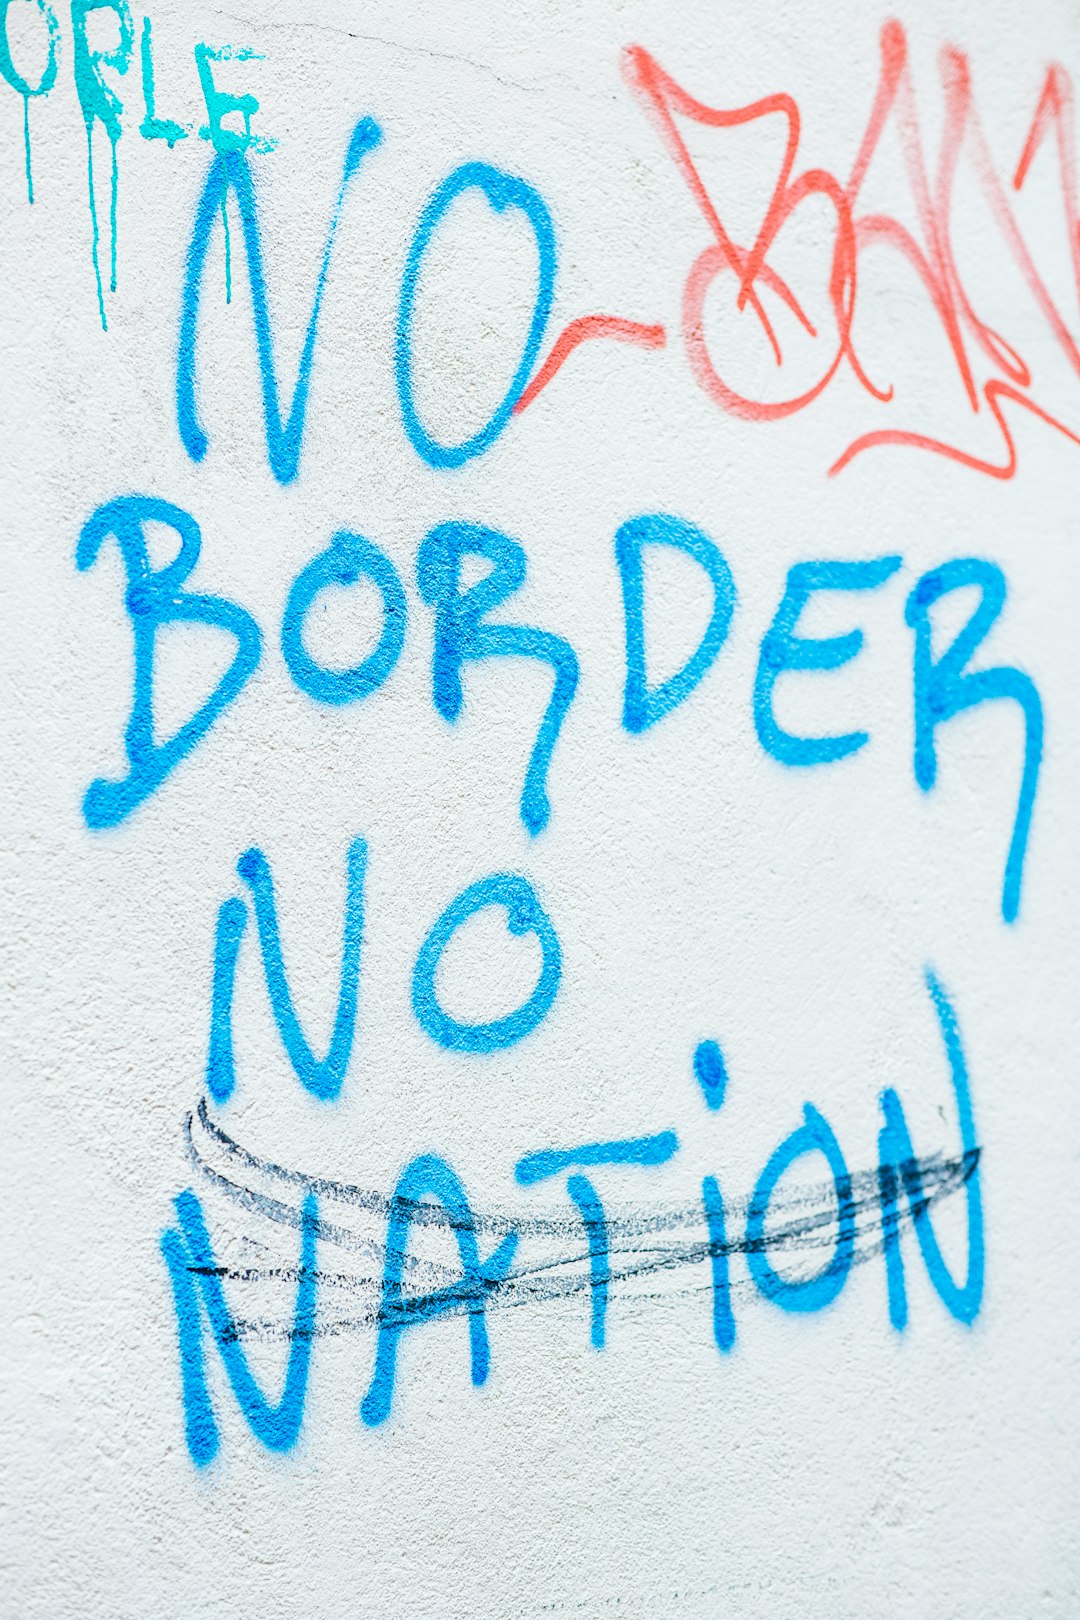 ORLE
NO
BORDER
NO
NATiON